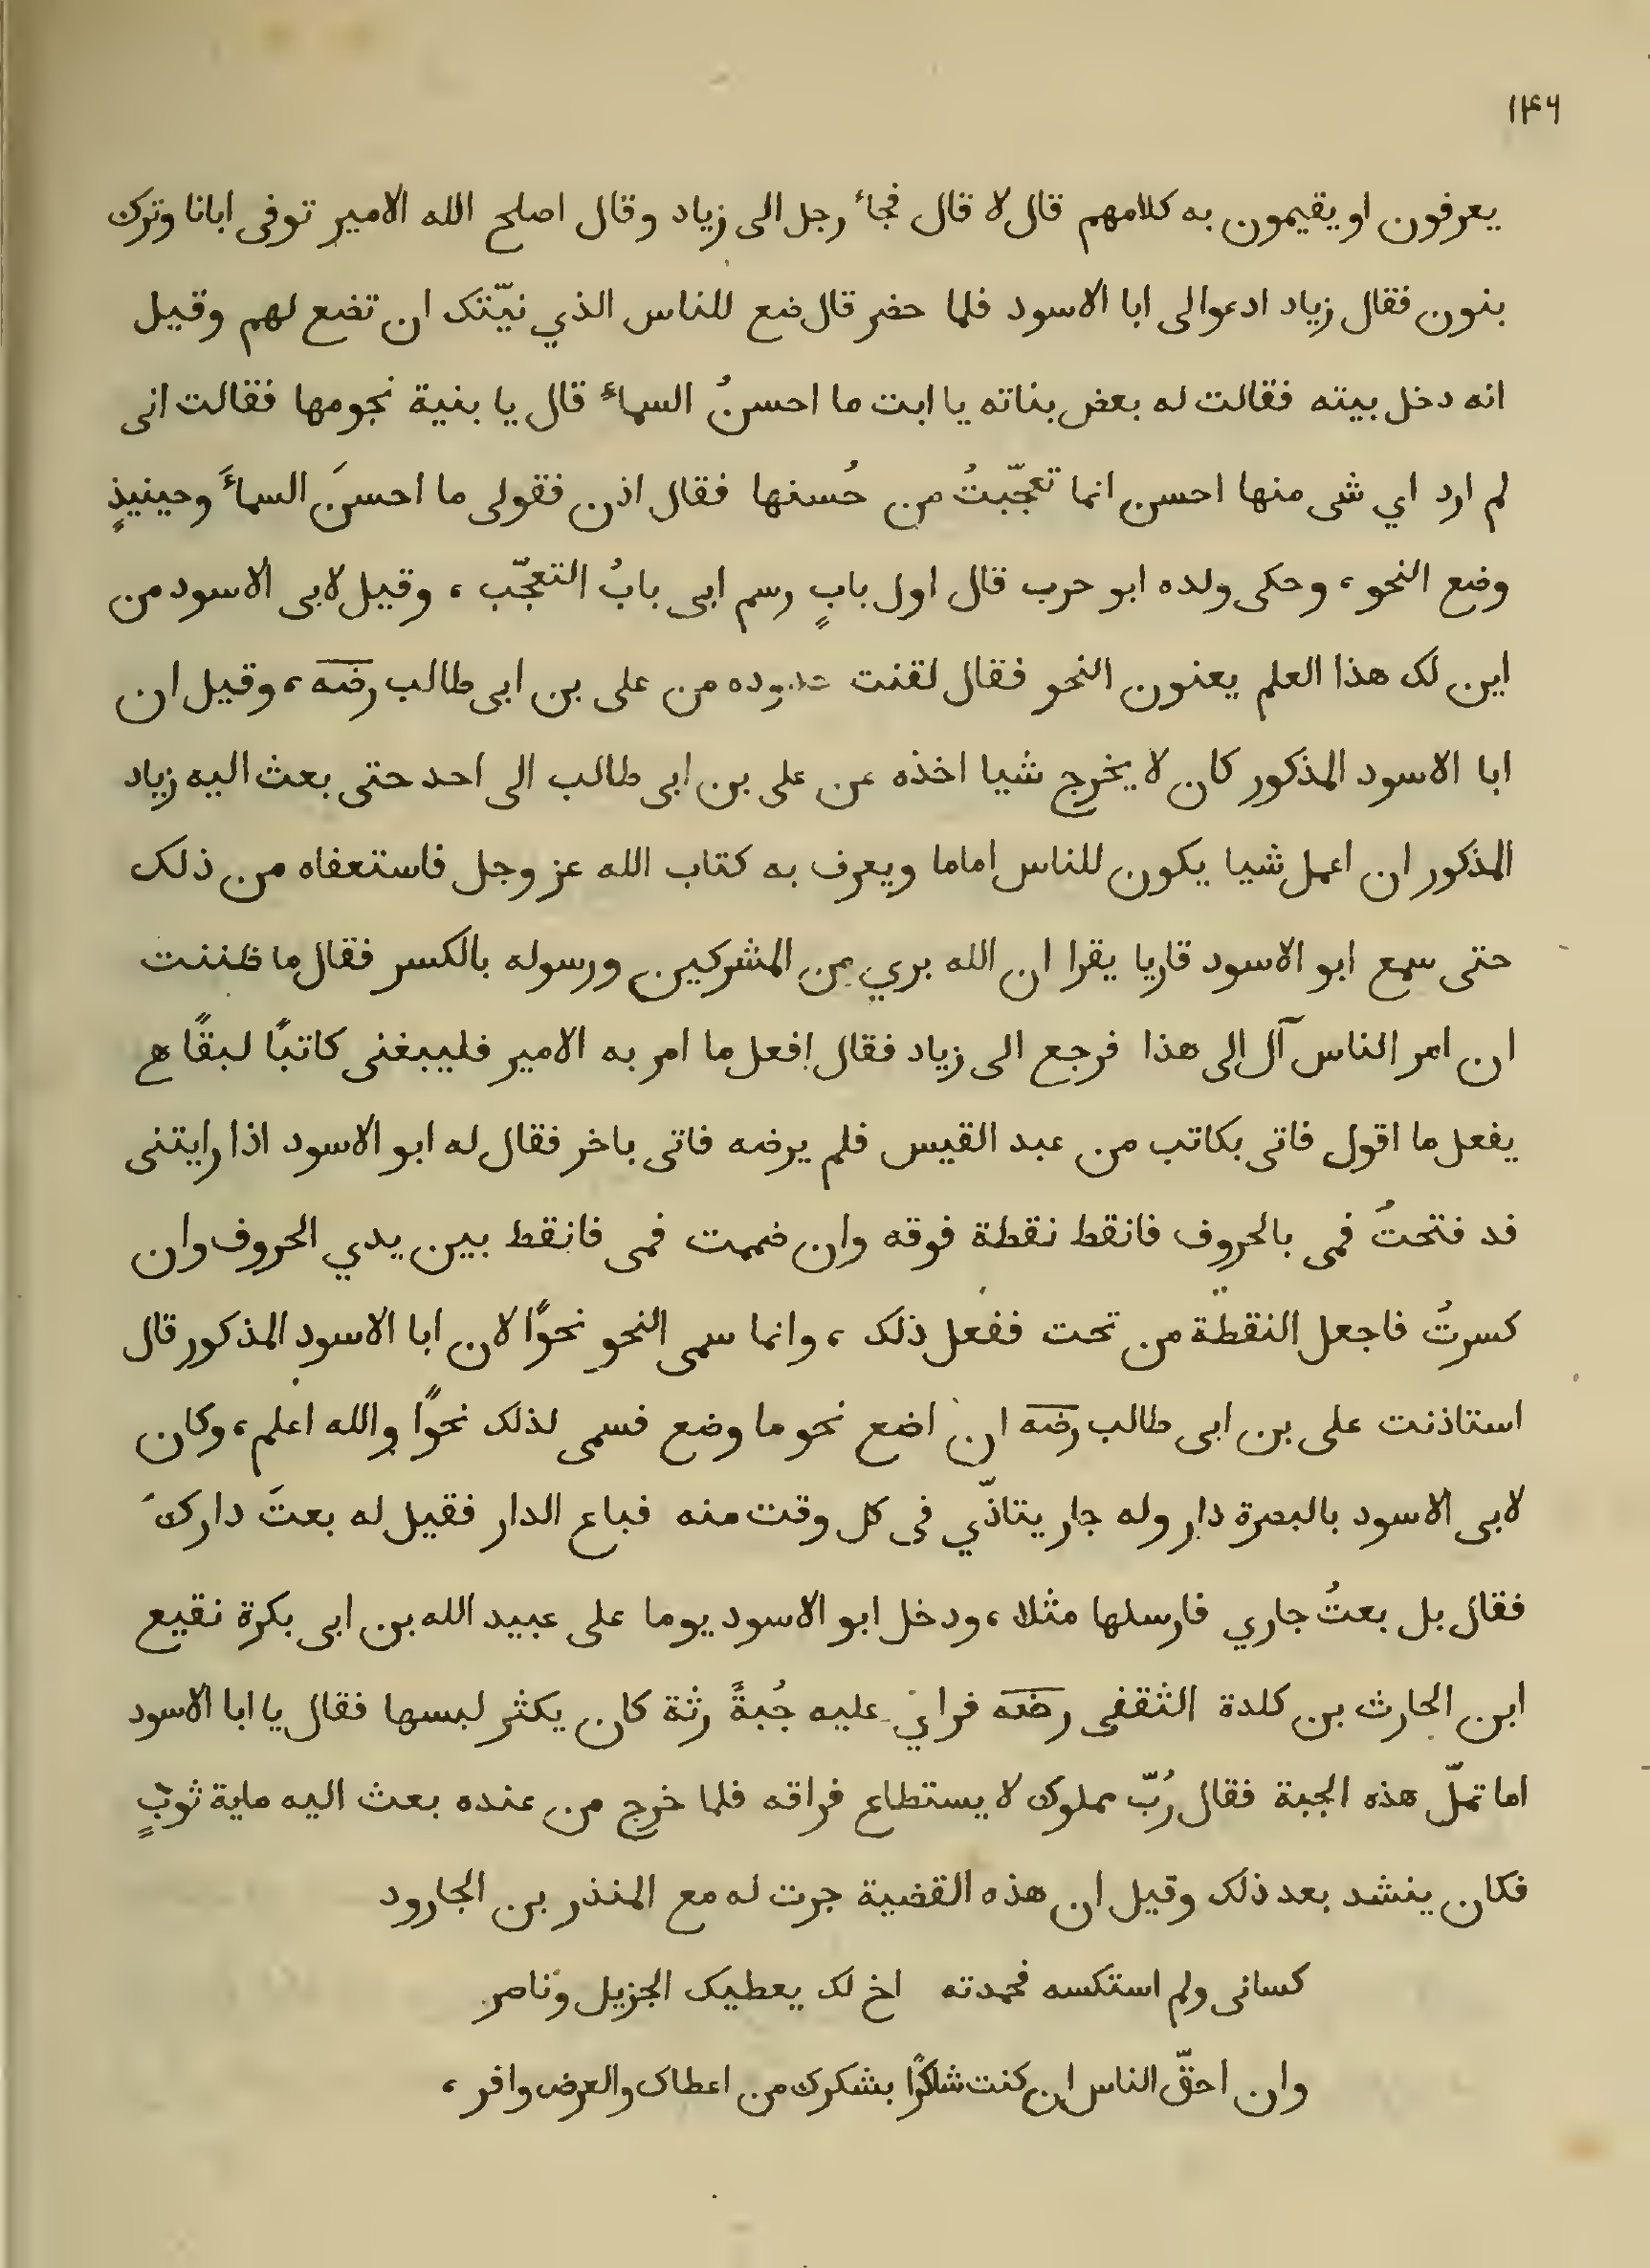 ١٣٦
يعرفون او يقيمون به كلامهم قال لا قال فجاء رجل الى زياد وقال اصلح الله الامير توفى ابانا وترك
بنون فقال زياد ادعوا لى ابا الاسود فلما حضر قال ضع للناس الذي نيّتك ان تضع لهم وقيل
انه دخل بيته فقالت له بعض بناته يا ابت ما احسنُ السماء قال يا بنية نجومها فقالت انى
لم ارد اي شى منها احسن انما تعجّبتُ من حُسنها فقال اذن فقولى ما احسنَ السماءَ وحينيذٍ
وضع النحو ، وحكى ولده ابو حرب قال اول بابٍ رسم ابى بابُ التعجّب ، وقيل لابى الاسود من
اين لك هذا العلم يعنون النحو فقال لقنت حدوده من على بن ابى طالب رضه ، وقيل ان
ابا الاسود المذكور كان لا يخرج شيا اخذه عن على بن ابى طالب الى احد حتى بعث اليه زياد
المذكور ان اعمل شيا يكون للناس اماما ويعرف به كتاب الله عز وجل فاستعفاه من ذلك
حتى سمع ابو الاسود قاريا يقرا ان الله بري من المشركين ورسوله بالكسر فقال ما ظننت
ان امر الناس آل الى هذا فرجع الى زياد فقال افعل ما امر به الامير فليبغنى كاتبًا لبقًا
يفعل ما اقول فاتى بكاتب من عبد القيس فلم يرضه فاتى باخر فقال له ابو الاسود اذا رايتنى
قد فتحتُ فمى بالحروف فانقط نقطة فوقه وان ضممت فمى فانقط بين يدي الحروف وان
كسرتُ فاجعل النقطة من تحت ففعل ذلك ، وانما سمى النحو نحوًا لان ابا الاسود المذكور قال
استاذنت على بن ابى طالب رضه ان اضع نحو ما وضع فسمى لذلك نحوًا والله اعلم ، وكان
لابى الاسود بالبصرة دار وله جار يتاذّي فى كل وقت منه فباع الدار فقيل له بعتَ دارك
فقال بل بعتُ جاري فارسلها مثلا ، ودخل ابو الاسود يوما على عبيد الله بن ابى بكرة نقيع
ابن الحارث بن كلدة الثقفى رضه فراي عليه جُبةً رثة كان يكثر لبسها فقال يا ابا الاسود
اما تملّ هذه الجبة فقال رُبّ مملوك لا يستطاع فراقه فلما خرج من عنده بعث اليه ماية ثوبٍ
فكان ينشد بعد ذلك وقيل ان هذه القضية جرت له مع المنذر بن الجارود
كسانى ولم استكسه فحمدته اخ لك يعطيك الجزيل وناصر
وان احقّ الناس ان كنت شاكرًا بشكرك من اعطاك والعرض وافر ،